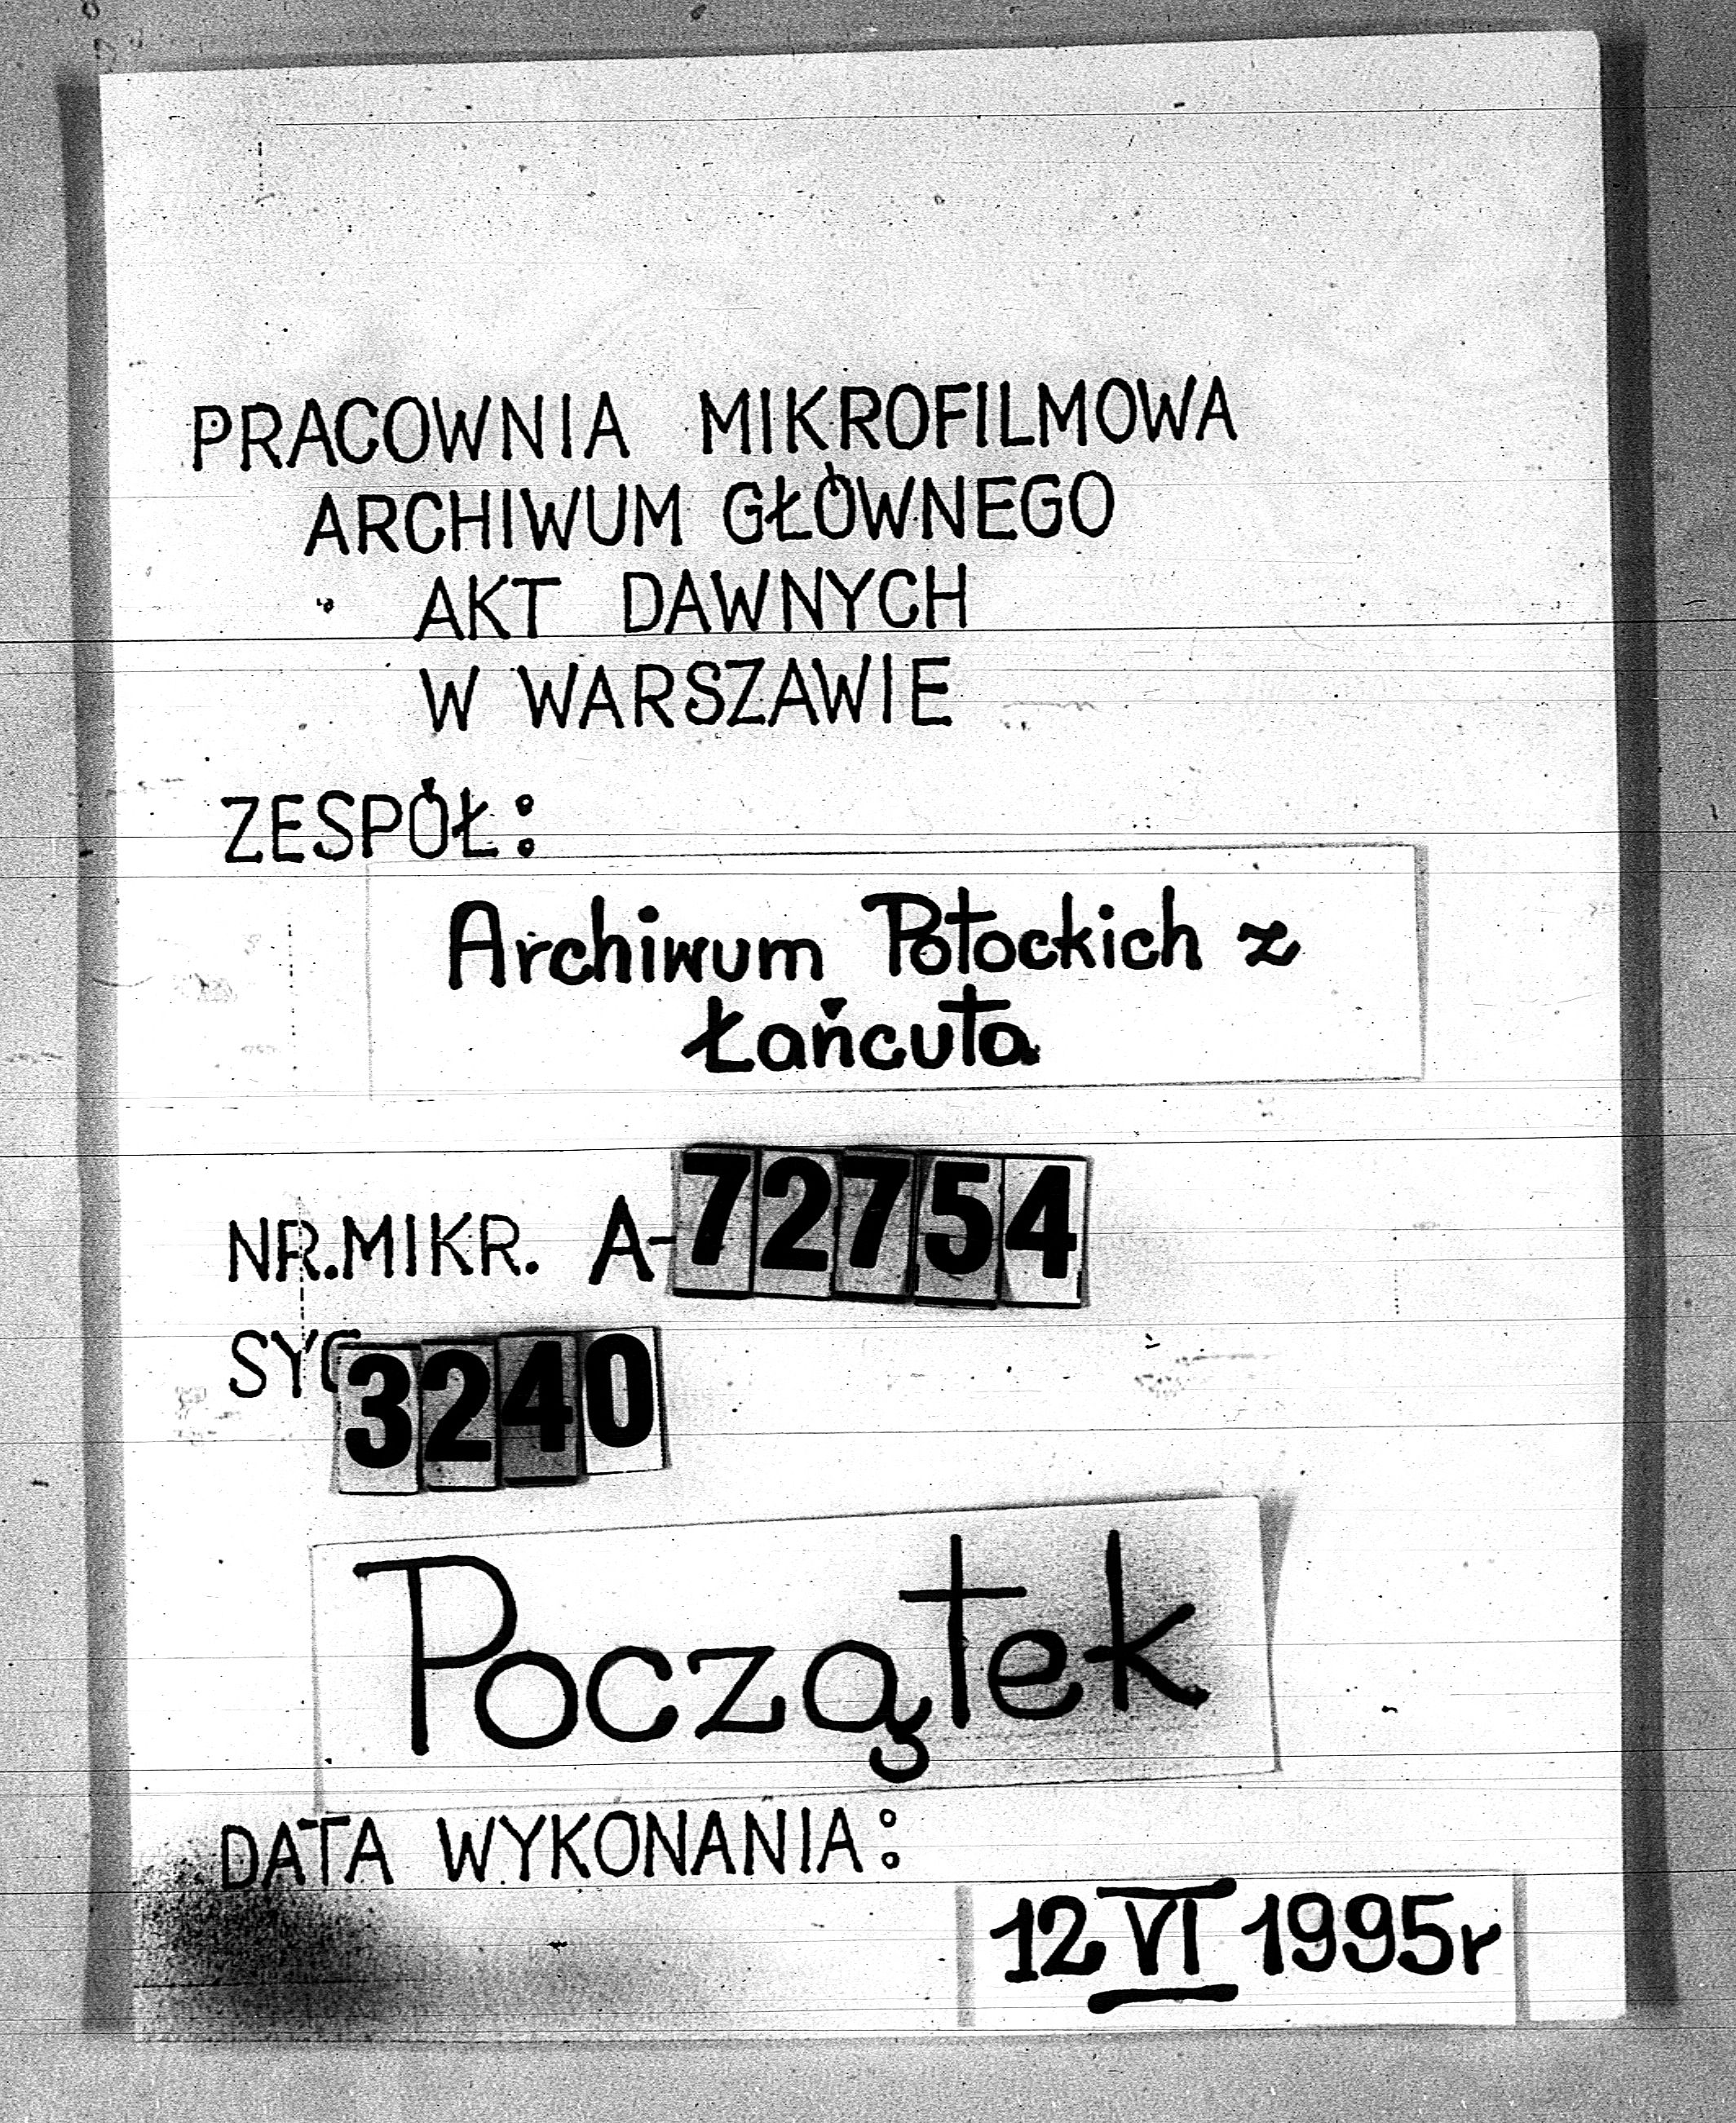 PRACOWNIA MIKROFILMOWA
ARCHIWUM GŁÓWNEGO
AKT DAWNYCH
W WARSZAWIE
ZESPÓŁ:
Archiwum Potockich z
Łańcuta
NR.MIKR. A-72754
SYG 3240
Początek
DATA WYKONANIA:
12 VI 1995r